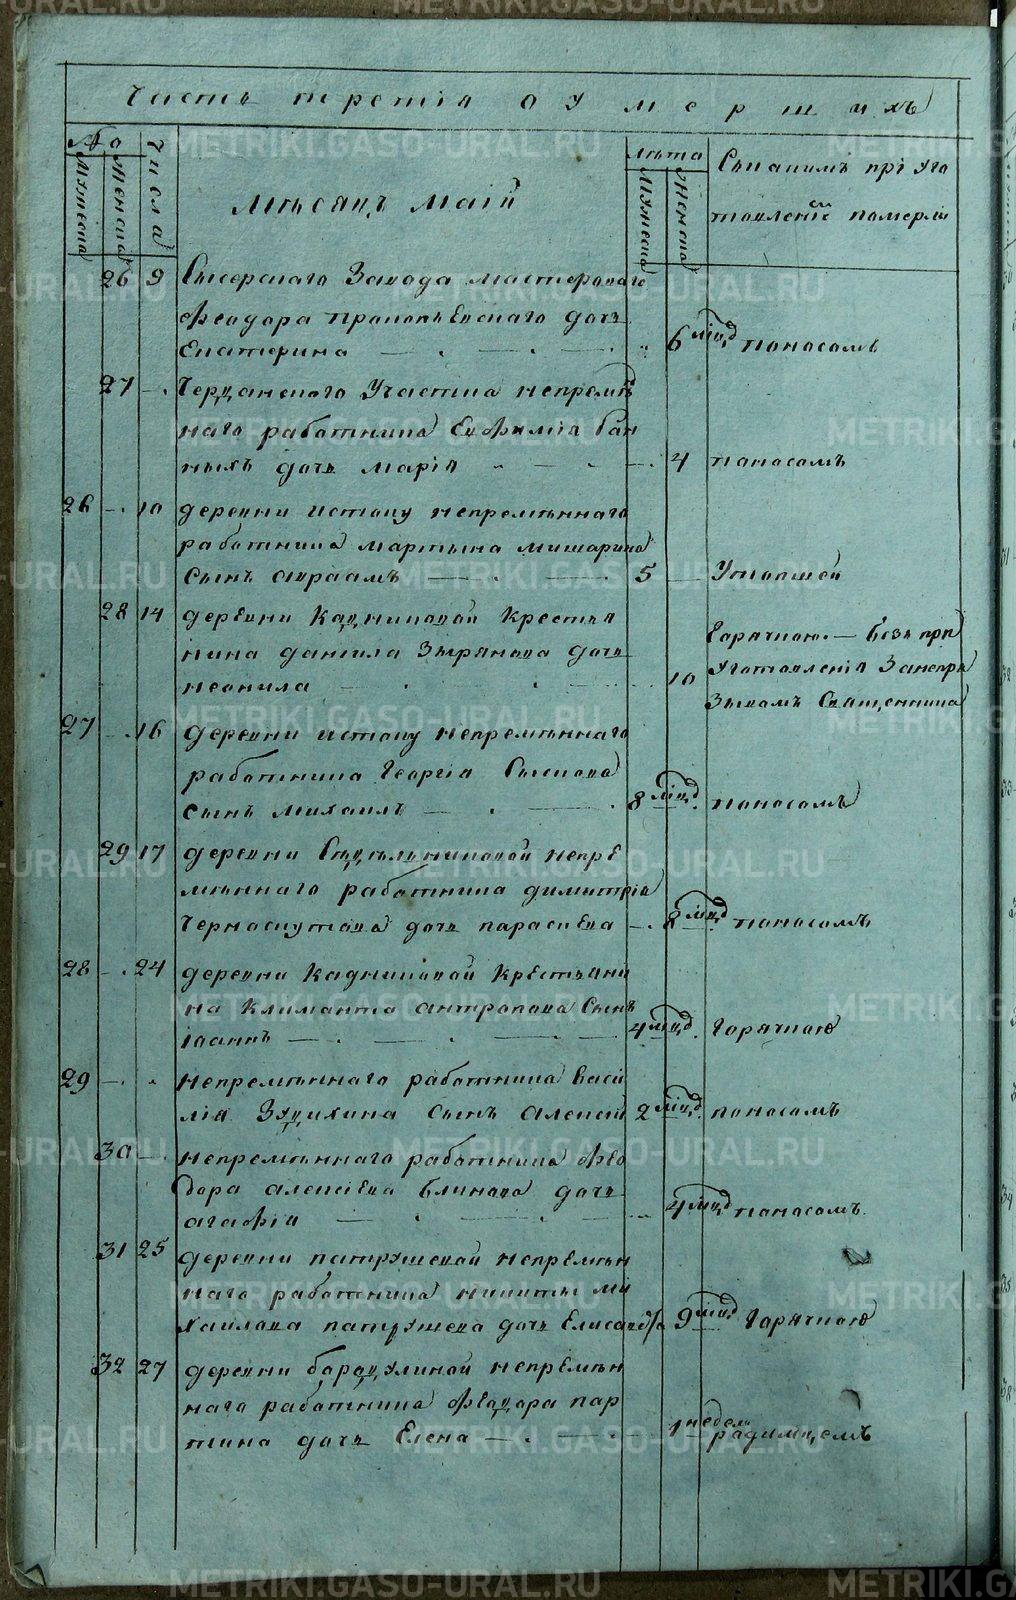 Часть третія о умершихъ
№
Мужеска
Женска
Числа
Мѣсяцъ Маій
лѣта
Мужеска
Женска
Съ какимъ пріуго
товленіемъ померли
26 9 Сысерскаго Завода мастероваго
Феодора Прокопьевскаго дочь
Екатерина 6 мѣсяц поносомъ
27 Черданскаго Участка непремѣ
наго работника Евфимія Бан
ныхъ дочь Марія 4 поносомъ
26 10 деревни Истоку непремѣннаго
работника Мартына Мишарина
Сынъ Авраамъ 5 Утопшей
28 14 деревни Кадниковой Крестья
нина Данила Зырянова дочь
Неонила 10
Горячкою. — безъ прі
уготовленія За непри
зывомъ Священника
27 16 деревни Истоку непремѣннаго
работника Георгія Сыскова
Сынъ Михаилъ 8 мѣсяц. поносомъ
29 17 деревни Седельниковой непре
мѣннаго работника Димитрія
Черноскутова дочь Параскева 8 мѣсяц поносомъ
28 24 деревни Кадниковой Крестьяни
на Климанта Антропова Сынъ
Іоаннъ 4 мѣсяц. Горячкою
29 непремѣннаго работника Васи
лія Зудихина Сынъ Алексій 2 мѣсяц. поносомъ
30 непремѣннаго работника Фео
дора Алексіева Блинова дочь
Агафія 4 мѣсяц поносомъ
31 25 деревни Патрушевой непремѣн
наго работника Никиты Ми
хайлова Патрушева дочь Елисавефа 9 мѣсяц Горячкою
32 27 деревни Бородулиной непремѣн
наго работника Феодора Пар
тина дочь Елена 1 недел. родимцемъ
METRIKI.GASO-URAL.RU